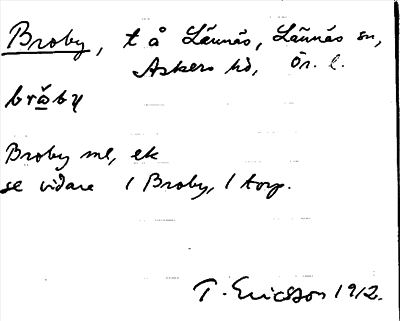 Broby, t å Lännäs, Lännäs sn,
Askers hd, Ör. l.
bråby
Broby ml, ek
se vidare 1 Broby, 1 torp.
T. Ericsson 1912.